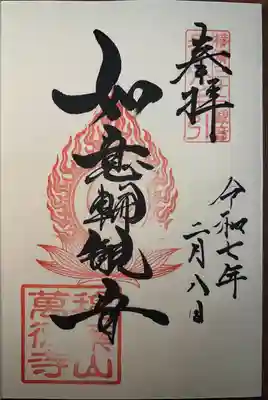 奉拝
如意輪観音
令和七年
二月八日
萬徳寺